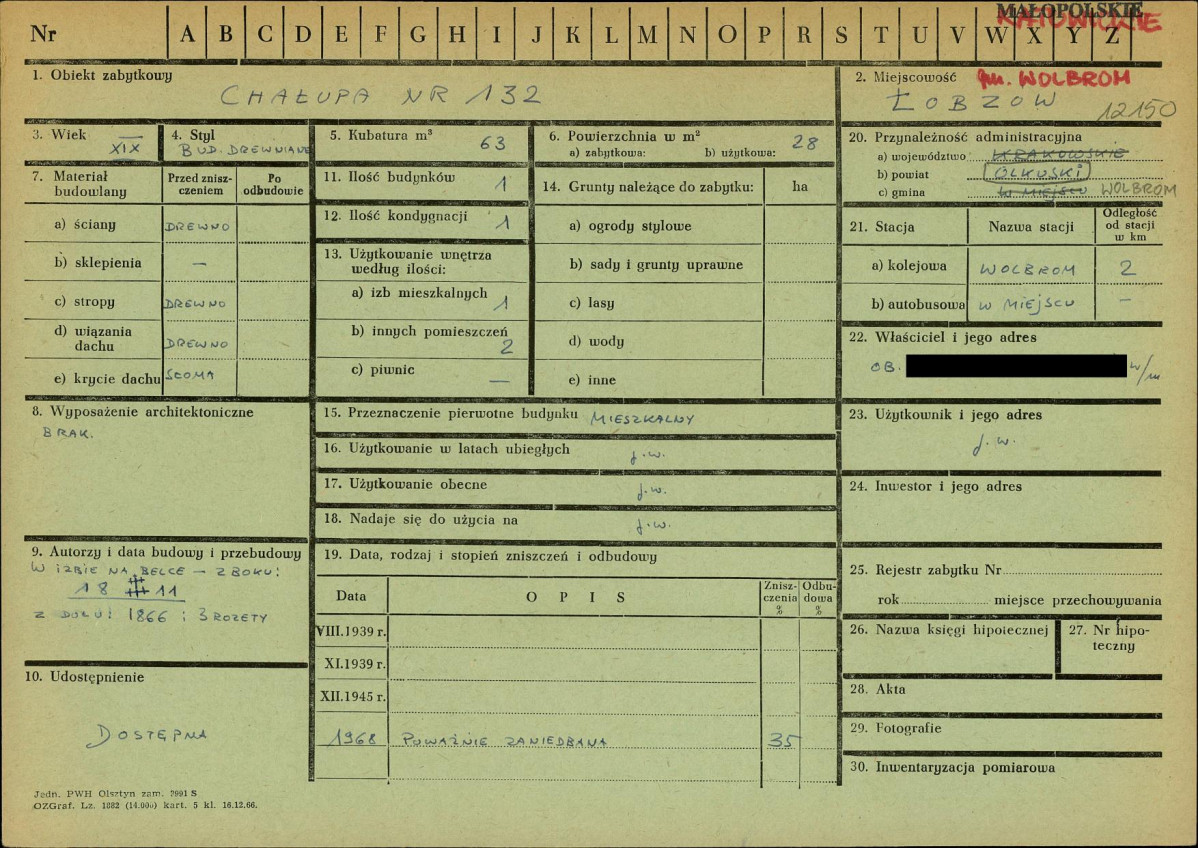 MAŁOPOLSKIE
KATOWICKIE
Nr A B C D E F G H I J K L M N O P R S T U V W X Y Z
1. Obiekt zabytkowy
CHAŁUPA NR 132
2. Miejscowość gm. WOLBROM
ŁOBZÓW
12150
3. Wiek
XIX
4. Styl
BUD. DREWNIANE
5. Kubatura m³ 63
6. Powierzchnia w m²
a) zabytkowa: b) użytkowa: 28
7. Materiał budowlany
Przed zniszczeniem
Po odbudowie
a) ściany DREWNO
b) sklepienia —
c) stropy DREWNO
d) wiązania dachu DREWNO
e) krycie dachu SŁOMA
8. Wyposażenie architektoniczne
BRAK.
9. Autorzy i data budowy i przebudowy
W IZBIE NA BELCE — Z BOKU:
18 11
Z DOŁU: 1866 i 3 ROZETY
10. Udostępnienie
DOSTĘPNA
11. Ilość budynków 1
12. Ilość kondygnacji 1
13. Użytkowanie wnętrza według ilości:
a) izb mieszkalnych 1
b) innych pomieszczeń 2
c) piwnic —
14. Grunty należące do zabytku: ha
a) ogrody stylowe
b) sady i grunty uprawne
c) lasy
d) wody
e) inne
15. Przeznaczenie pierwotne budynku MIESZKALNY
16. Użytkowanie w latach ubiegłych j.w.
17. Użytkowanie obecne j.w.
18. Nadaje się do użycia na j.w.
19. Data, rodzaj i stopień zniszczeń i odbudowy
Data OPIS Zniszczenia % Odbudowa %
VIII.1939 r.
XI.1939 r.
XII.1945 r.
1968 POWAŻNIE ZANIEDBANA 35
20. Przynależność administracyjna
a) województwo KRAKOWSKIE
b) powiat OLKUSKI
c) gmina W MIEJSCU WOLBROM
21. Stacja Nazwa stacji Odległość od stacji w km
a) kolejowa WOLBROM 2
b) autobusowa W MIEJSCU —
22. Właściciel i jego adres
OB. w/m
23. Użytkownik i jego adres
j.w.
24. Inwestor i jego adres
25. Rejestr zabytku Nr
rok miejsce przechowywania
26. Nazwa księgi hipotecznej
27. Nr hipoteczny
28. Akta
29. Fotografie
30. Inwentaryzacja pomiarowa
Jedn. PWH Olsztyn zam. 7991 S
OZGraf. Lz. 1882 (14.000) kart. 5 kl. 16.12.66.